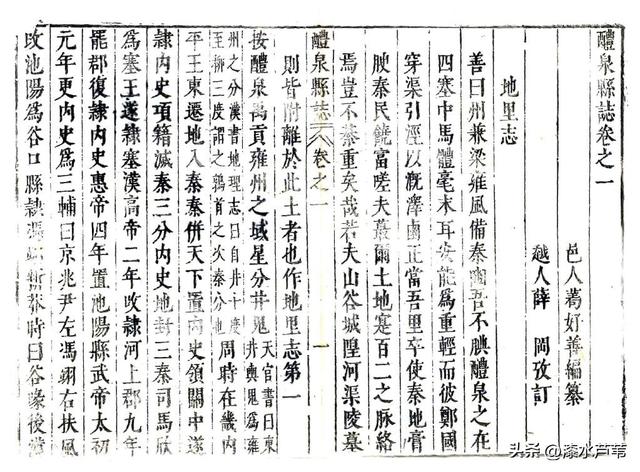 醴泉縣誌卷之一
邑人苟好善編纂
越人薛岡攷訂
地里志
善曰州兼梁雍風備秦豳吾不腆醴泉之在
四塞中馬體毫末耳安能為重輕而彼鄭國
穿渠引涇以溉澤鹵正當吾里卒使秦地膏
腴秦民饒富嗟夫蕞爾土地寔百二之脉絡
焉豈不綦重矣哉若夫山谷城隍河渠陵墓
醴泉縣誌 卷之一 一
則皆附離於此土者也作地里志第一
按醴泉禹貢雍州之域星分井鬼天官書曰東井輿鬼為雍
州之分漢書地理志曰自井十度至柳三度謂之鶉首之次秦分也周時在畿內
平王東遷地入秦秦併天下置內史領關中遂
隸內史項籍滅秦三分內史地封三秦司馬欣
為塞王遂隸塞漢高帝二年改隸河上郡九年
罷郡復隸內史惠帝四年置池陽縣武帝太初
元年更內史為三輔曰京兆尹左馮翊右扶風
改池陽為谷口縣隸馮翊新莽時曰谷喙後漢
头条 @漆水芦苇